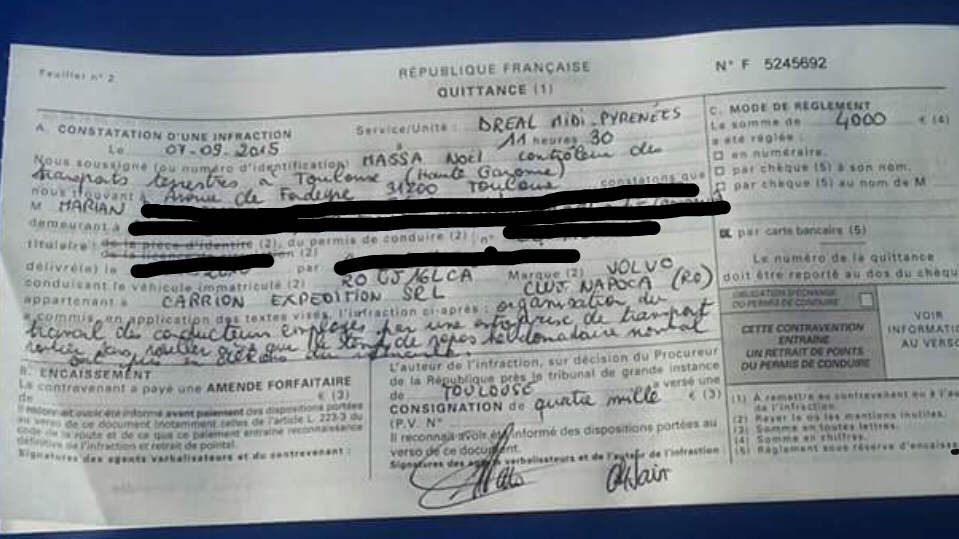 Feuillet n° 2
RÉPUBLIQUE FRANÇAISE
QUITTANCE (1)
N° F 5245692
A. CONSTATATION D'UNE INFRACTION
Service/Unité : DREAL MIDI-PYRENÉES
Le 07-09-2015 à 11 heures 30
Nous soussigné (ou numéro d'identification) MASSA Noël contrôleur des
transports terrestres à Toulouse (Haute Garonne)
nous trouvant à Avenue de 31200 Toulouse constatons que
M MARIAN
demeurant à
titulaire : de la pièce d'identité (2), du permis de conduire (2) n°
de la licence (2)
délivré(e) le par
conduisant le véhicule immatriculé (2) RO CJ16LCA Marque (2) VOLVO
appartenant à CARRION EXPEDITION SRL CLUJ NAPOCA (RO)
a commis, en application des textes visés, l'infraction ci-après : organisation du
travail de conducteurs employés par une entreprise de transport
routier sans veiller à ce que le temps de repos hebdomadaire normal
B. ENCAISSEMENT
Le contrevenant a payé une AMENDE FORFAITAIRE
de € (3)
Il reconnait avoir été informé avant paiement des dispositions portées
au verso de ce document (notamment celles de l'article L. 223-3 du
code de la route et de ce que ce paiement entraîne reconnaissance
définitive de l'infraction et retrait de points).
Signatures des agents verbalisateurs et du contrevenant :
L'auteur de l'infraction, sur décision du Procureur
de la République près le tribunal de grande instance
de TOULOUSE a versé une
CONSIGNATION de quatre mille € (3)
(P.V. N°
Il reconnait avoir été informé des dispositions portées au
verso de ce document.
Signatures des agents verbalisateurs et de l'auteur de l'infraction
C. MODE DE RÈGLEMENT
La somme de 4000 € (4)
a été réglée :
en numéraire.
par chèque (5) à son nom.
par chèque (5) au nom de M
par carte bancaire (5)
Le numéro de la quittance
doit être reporté au dos du chèqu
OBLIGATION D'ÉCHANGE
DU PERMIS DE CONDUIRE
CETTE CONTRAVENTION
ENTRAINE
UN RETRAIT DE POINTS
DU PERMIS DE CONDUIRE
VOIR
INFORMATIO
AU VERSO
(1) A remettre au contrevenant ou à l'au
de l'infraction.
(2) Rayer le ou les mentions inutiles.
(3) Somme en toutes lettres.
(4) Somme en chiffres.
(5) Règlement sous réserve d'encaisse